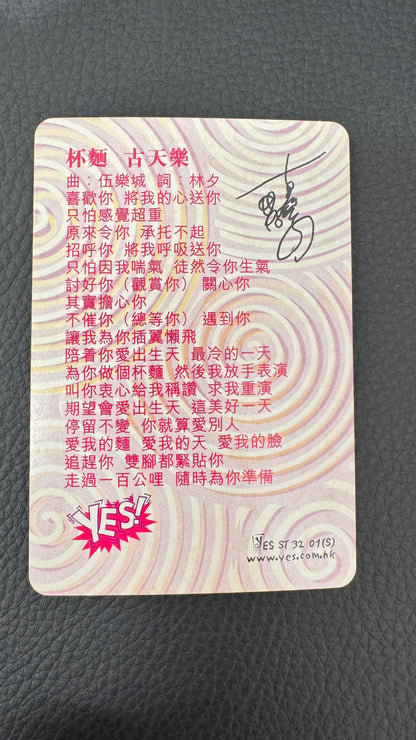 杯麵 古天樂
曲：伍樂城 詞：林夕
喜歡你 將我的心送你
只怕感覺超重
原來令你 承托不起
招呼你 將我呼吸送你
只怕因我喘氣 徒然令你生氣
討好你（觀賞你） 關心你
其實擔心你
不催你（總等你） 遇到你
讓我為你插翼懶飛
陪着你愛出生天 最冷的一天
為你做個杯麵 然後我放手表演
叫你衷心給我稱讚 求我重演
期望會愛出生天 這美好一天
停留不變 你就算愛別人
愛我的麵 愛我的天 愛我的臉
追趕你 雙腳都緊貼你
走過一百公哩 隨時為你準備
YES!
YES ST 32 01(S)
www.yes.com.hk